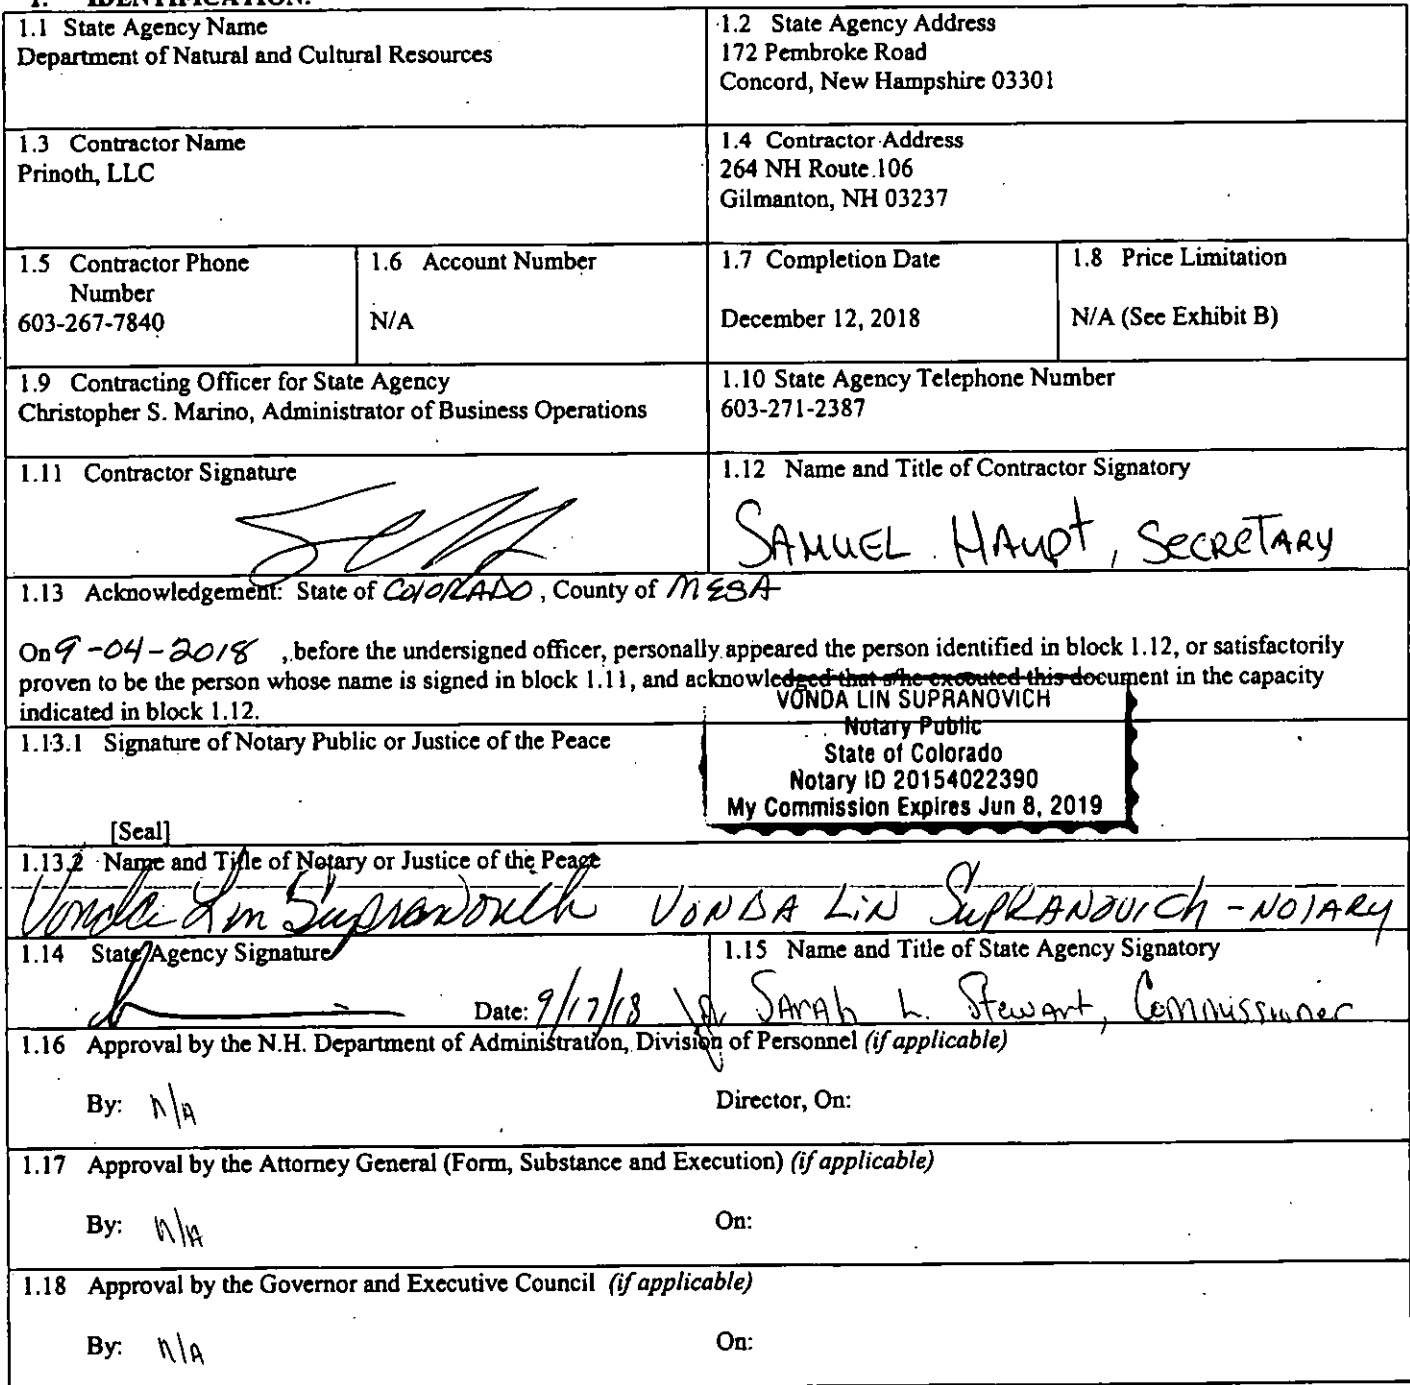 1. IDENTIFICATION.
1.1 State Agency Name
Department of Natural and Cultural Resources
1.2 State Agency Address
172 Pembroke Road
Concord, New Hampshire 03301
1.3 Contractor Name
Prinoth, LLC
1.4 Contractor Address
264 NH Route 106
Gilmanton, NH 03237
1.5 Contractor Phone
Number
603-267-7840
1.6 Account Number
N/A
1.7 Completion Date
December 12, 2018
1.8 Price Limitation
N/A (See Exhibit B)
1.9 Contracting Officer for State Agency
Christopher S. Marino, Administrator of Business Operations
1.10 State Agency Telephone Number
603-271-2387
1.11 Contractor Signature
1.12 Name and Title of Contractor Signatory
SAMUEL HAUPT, SECRETARY
1.13 Acknowledgement: State of COlORADO, County of MESA
On 9-04-2018, before the undersigned officer, personally appeared the person identified in block 1.12, or satisfactorily
proven to be the person whose name is signed in block 1.11, and acknowledged that s/he executed this document in the capacity
indicated in block 1.12.
VONDA LIN SUPRANOVICH
Notary Public
State of Colorado
Notary ID 20154022390
My Commission Expires Jun 8, 2019
1.13.1 Signature of Notary Public or Justice of the Peace
[Seal]
1.13.2 Name and Title of Notary or Justice of the Peace
Vonda Lin Supranovich VONDA LiN SupRANOVICh - NOTARY
1.14 State Agency Signature
Date: 9/17/18
1.15 Name and Title of State Agency Signatory
SArAh L. Stewart, Commissioner
1.16 Approval by the N.H. Department of Administration, Division of Personnel (if applicable)
By: n/A
Director, On:
1.17 Approval by the Attorney General (Form, Substance and Execution) (if applicable)
By: n/A
On:
1.18 Approval by the Governor and Executive Council (if applicable)
By: n/A
On: